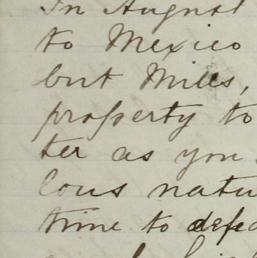 In August
to Mexico
but Mills,
property to
ter as you
lous natu
time to defe